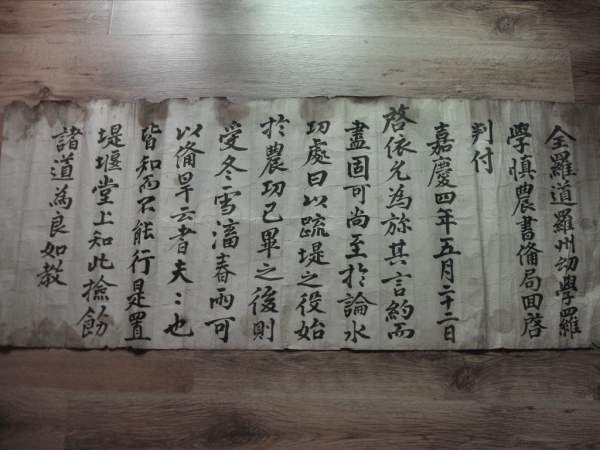 全羅道羅州幼學羅
學愼農書備局回啓
判付
嘉慶四年五月二十二日
啓依允為旀其言約而
盡固可尚至於論水
功處曰以䟽堤之役始
於農功已畢之後則
受冬雪瀋春雨可
以備旱云者夫〻也
皆知而不能行是置
堤堰堂上知此撿飭
諸道為良如教